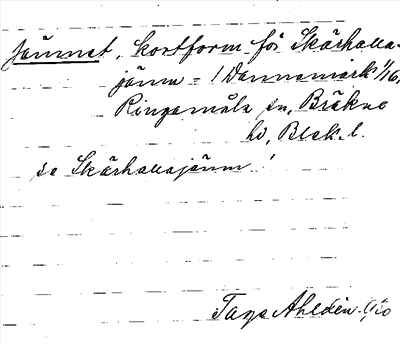 jännet, kortform för Skärhalla-
jänn = / Dannemark 1/16,
Ringamåla sn, Bräkne
hd, Blek. l.
se Skärhallajänn!
Tage Ahldén